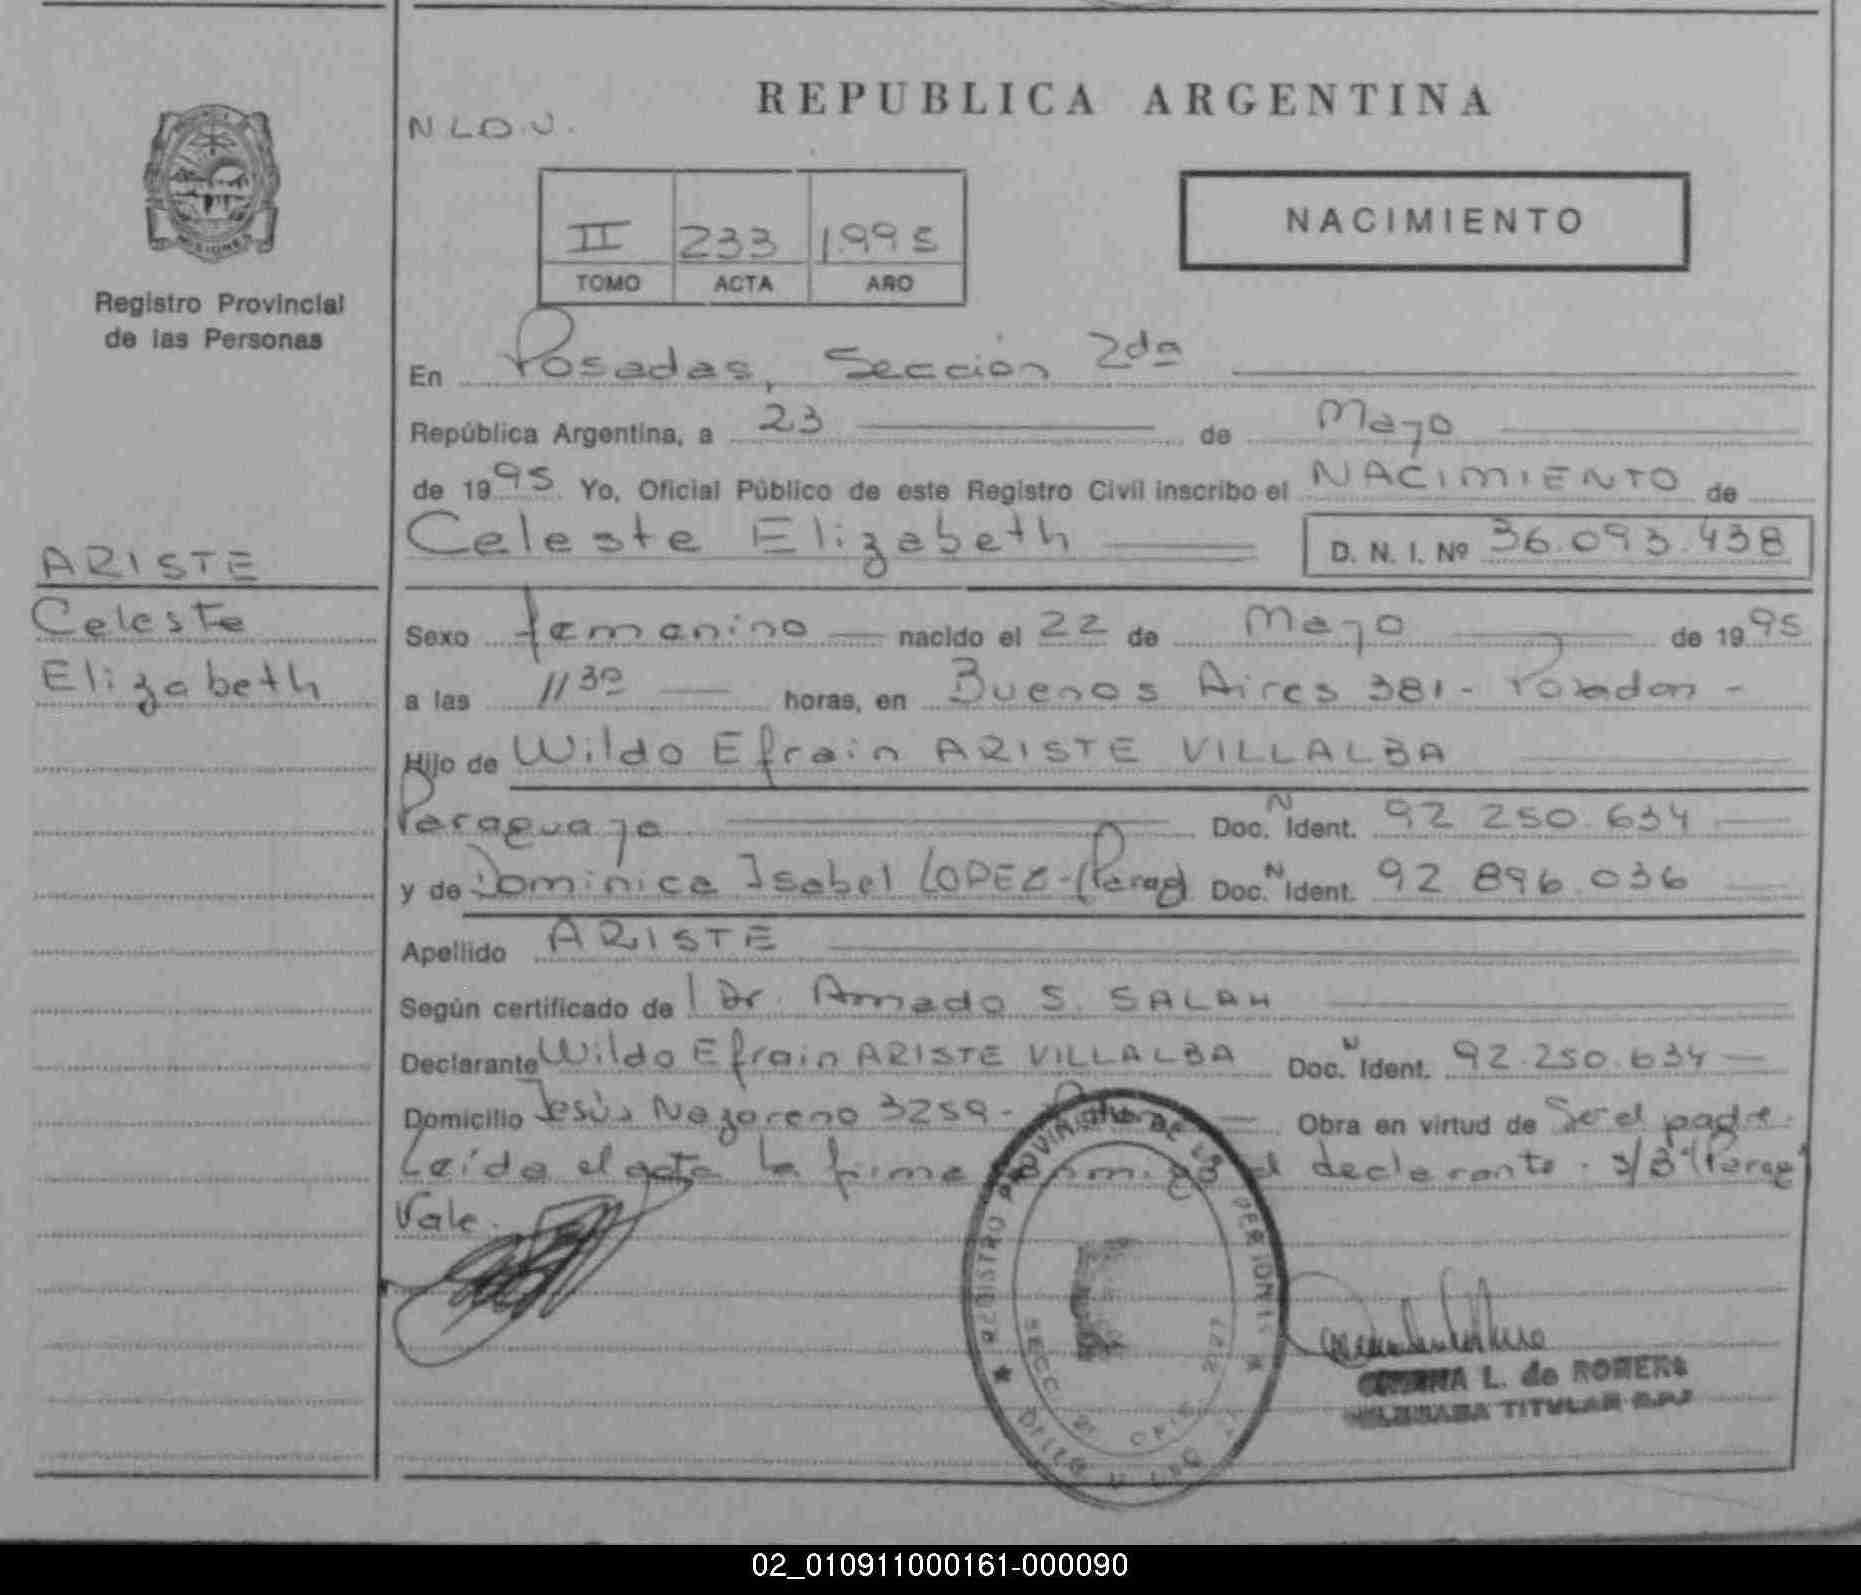 REPUBLICA ARGENTINA
N L D U.
NACIMIENTO
II 233 1995
TOMO ACTA AÑO
MISIONES
Registro Provincial
de las Personas
En Posadas, Sección 2da
República Argentina, a 23 de Mayo
de 1995. Yo, Oficial Público de este Registro Civil inscribo el NACIMIENTO de
Celeste Elizabeth D. N. I. Nº 36.093.438
ARISTE
Celeste
Elizabeth
Sexo femenino nacido el 22 de Mayo de 1995
a las 11 30 horas, en Buenos Aires 381 - Posadas -
Hijo de Wildo Efrain ARISTE VILLALBA
Paraguayo Doc. N Ident. 92 250.634
y de Dominica Isabel LOPEZ - (Parag) Doc. N Ident. 92 896.036
Apellido ARISTE
Según certificado de l Dr. Amado S. SALAH
Declarante Wildo Efrain ARISTE VILLALBA Doc. N Ident. 92.250.634
Domicilio Jesús Nazareno 3259 - Obra en virtud de Ser el padre.
Leída el acta la firma conmigo el declarante. S/B "(Parag"
Vale.
REGISTRO PROVINCIAL DE LAS PERSONAS
L. de ROMERO
TITULAR R.P.P
02_010911000161-000090